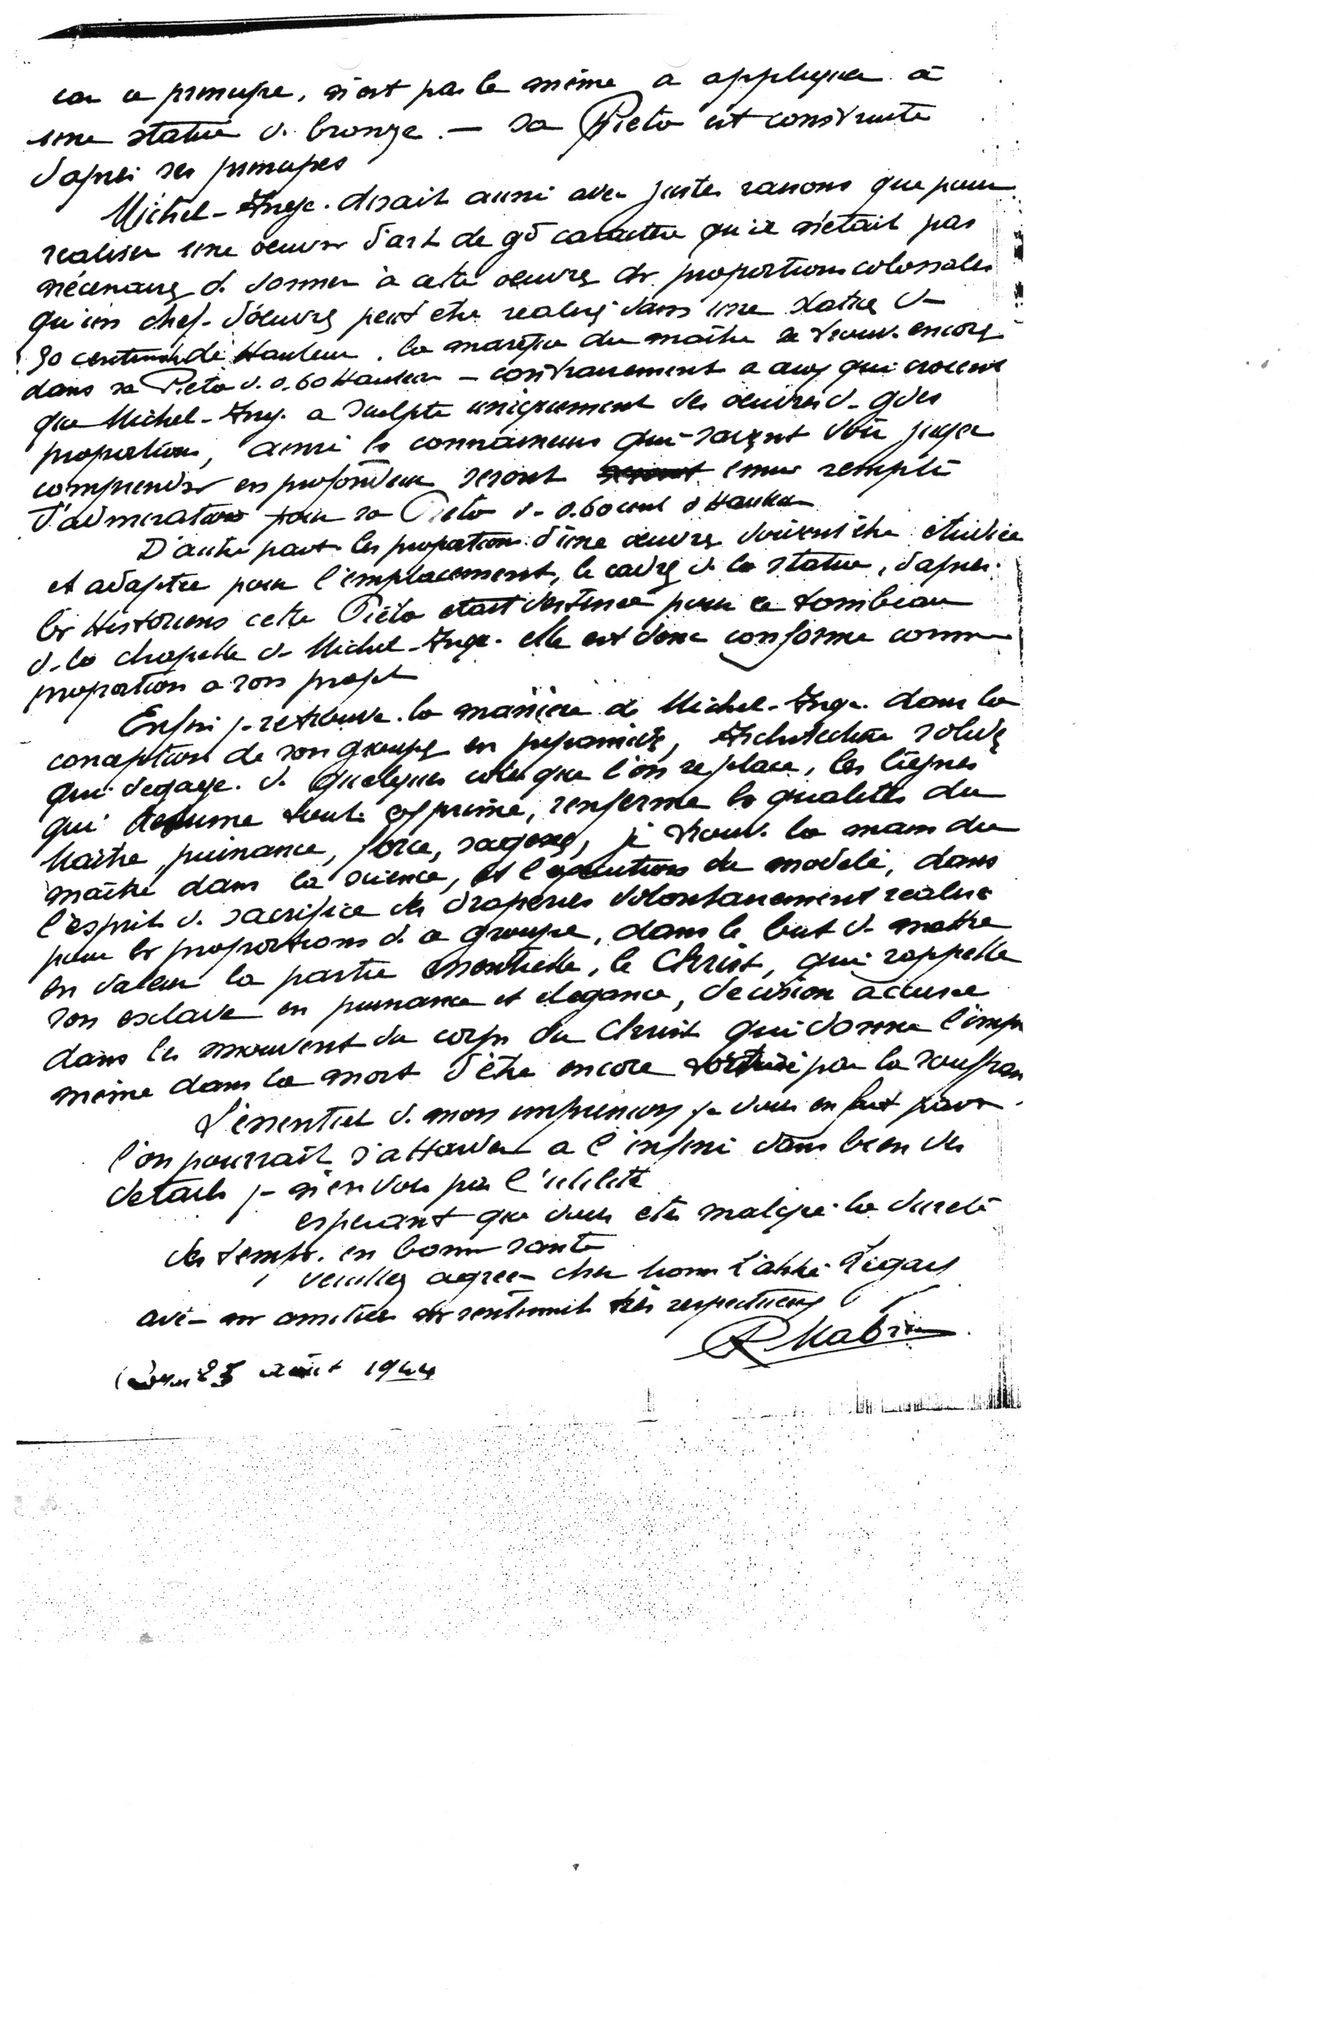 car ce principe, n'est pas le même a appliquer a
une statue de bronze. — sa Pieta est construite
d'après ses principes
Michel-Ange. disait aussi avec justes raisons que pour
realiser une oeuvre d'art de gd caractere qu'il n'était pas
nécessaire de donner à cette oeuvre des proportions colossales
qu'un chef-d'oeuvre peut etre realisé dans une statue de
50 centimetres de Hauteur. la du maître se trouve encore
dans sa Pieta de 0.60 Hauteur — contrairement a ceux qui croient
que Michel-Ange a sculpté uniquement des oeuvres de gdes
proportions, ainsi les connaisseurs qui savent voir juger
comprendre en profondeur seront emus remplis
d'admiration pour sa Pieta de 0.60 cent d Hauteur
D'autre part les proportions d'une oeuvre doivent être étudiée
et adaptée pour l'emplacement, le cadre de la statue, d'après
les Historiens cette Piéta etait destinée pour le tombeau
de la chapelle de Michel-Ange. elle est donc conforme comme
proportion a son projet
Enfin je retrouve la manière de Michel-Ange dans la
conception de son groupe en pyramide, Architecture solide
qui degage. de quelques cotés que l'on se place, les lignes
qui resume toute exprime, renferme les qualités du
Maître puissance, force, sagesse, je trouve la main du
maître dans la science, et l'execution du modelé, dans
l'esprit de sacrifice des draperies volontairement realisé
pour les proportions de ce groupe, dans le but de mettre
en valeur la partie essentielle, le Christ, qui rappelle
son esclave en puissance et elegance, decision accusée
dans les mouvent du corps du Christ qui donne l'impr
même dans la mort d'être encore torturé par la souffran
L'essentiel de mon impression je vous en fait part
l'on pourrait s'attarder a l'infini dans bien des
details je n'en vois pas l'utilité
esperant que vous etes malgré la dureté
des temps en bonne santé
veuillez agreer cher Monsr L'abbé Légard
avec mes amitiés mes sentiments très respectueux
25 août 1944